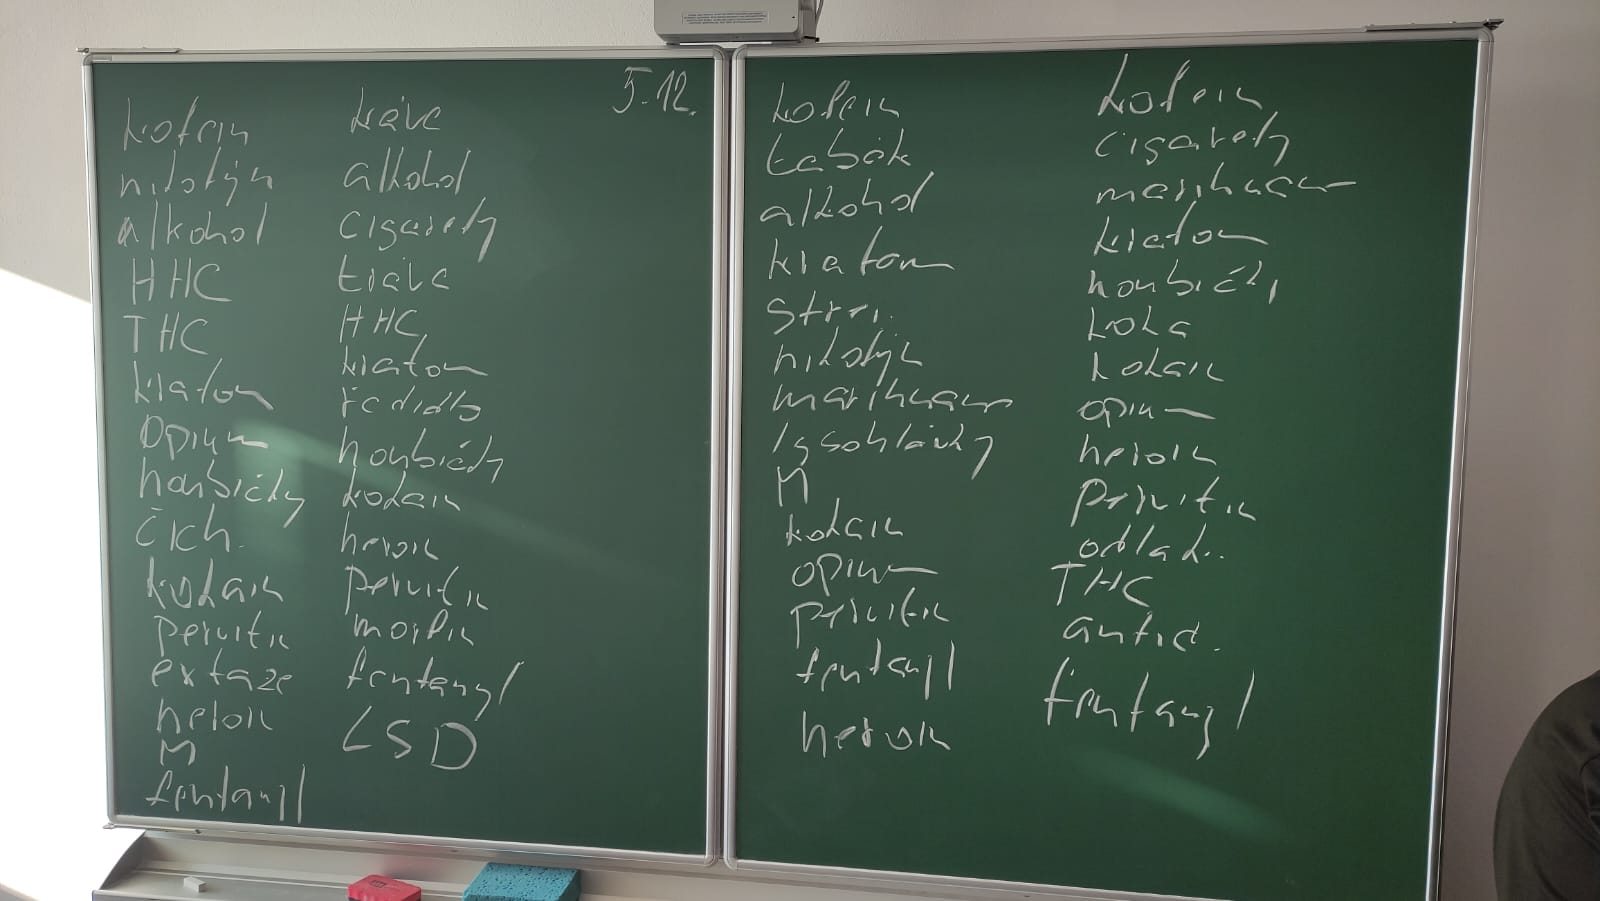 kofein
nikotýn
alkohol
HHC
THC
kratom
opium
houbičky
čich.
kokain
pervitin
extaze
heroin
M
fentanyl
káva
alkohol
cigarety
tráva
HHC
kratom
ředidlo
houbičky
kokain
heroin
pervitin
morfin
fentanyl
LSD
5.12.
kofein
tabák
alkohol
kratom
nikotýn
marihuana
lysohlávky
M
kokain
opium
pervitin
fentanyl
heroin
kofein
cigarety
marihuana
kratom
houbičky
koka
kokain
opium
heroin
pervitin
THC
antid.
fentanyl